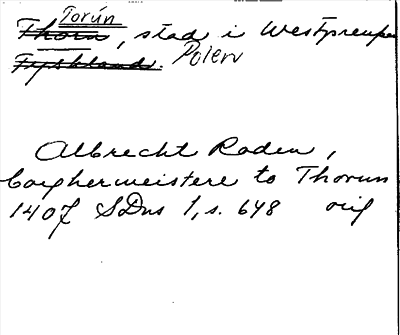 Torún
Thorn, stad i Westpreuße
Tyskland. Polen
Albrecht Roden,
borghermeistere to Thorun
1407 SDns 1, s. 648 orig